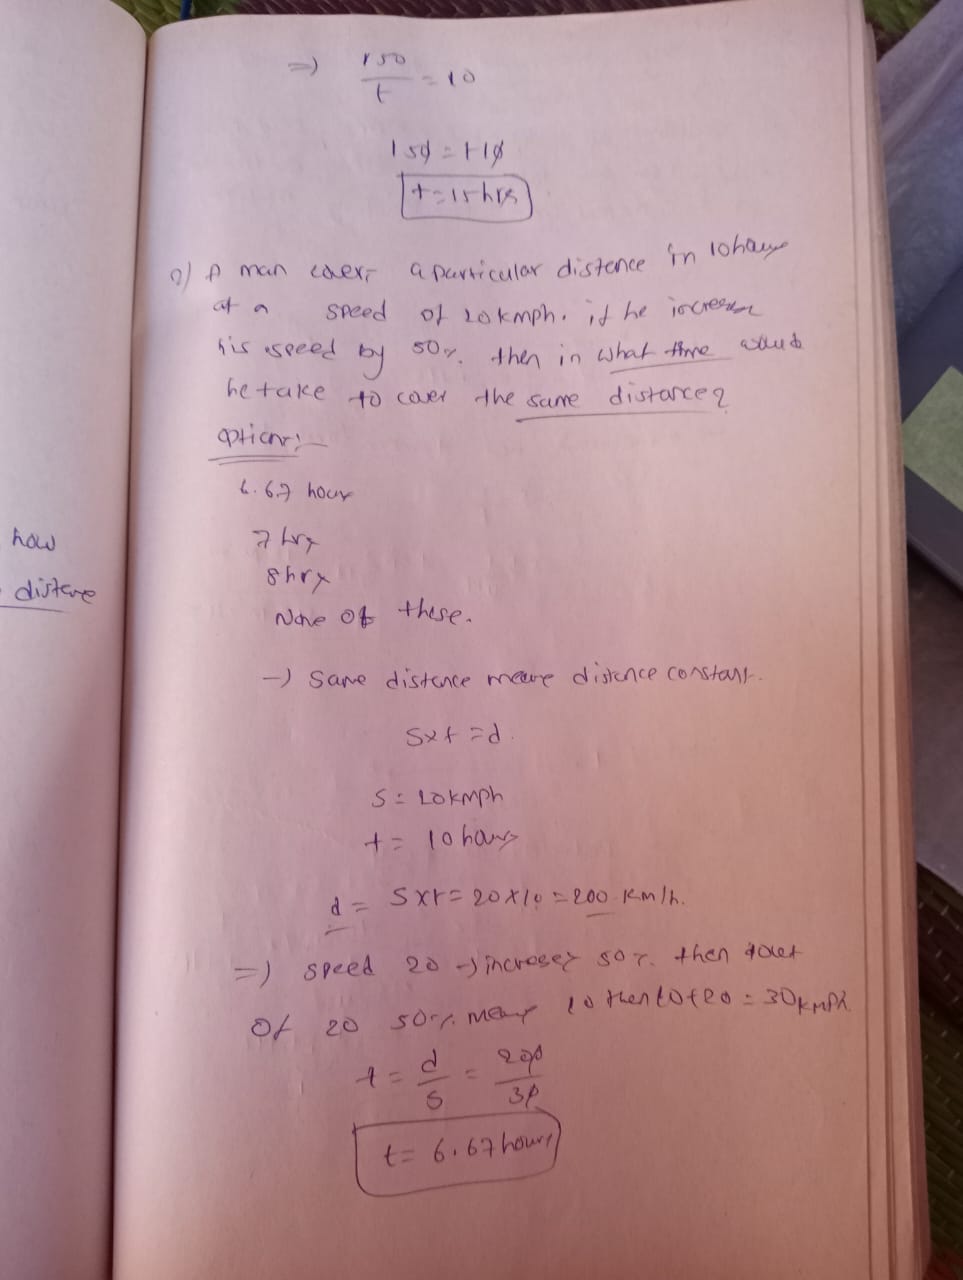 how
distere
=) 150/t = 10
150 = t10
t = 15 hrs
Q) A man covers a particular distance in 10 hours
at a speed of 20kmph. if he increase
his speed by 50% then in what time would
he take to cover the same distance?
option:
6.67 hour
7 hrs
8 hrs
None of these.
→ Same distance means distance constant.
S×t = d.
S = 20kmph
t = 10 hours
d = S×t = 20×10 = 200 km/h.
=) speed 20 → increases 50% then
Of 20 50% means 10 then 10+20 = 30kmph.
t = d/S = 200/30
t = 6.67 hours